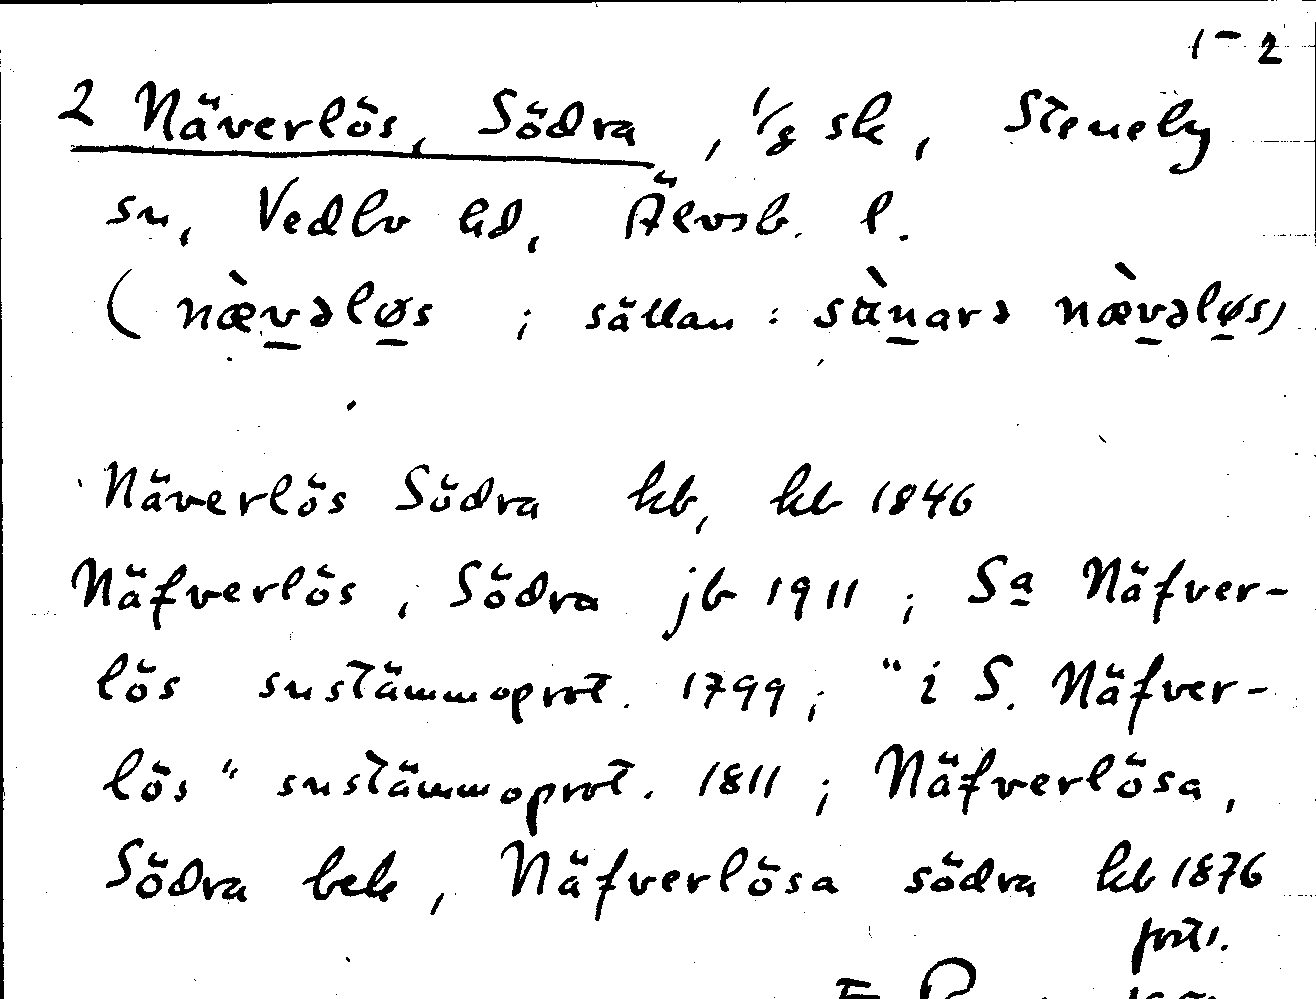 1-2
2 Näverlös, Södra, 1/8 sk, Steneby
sn, Vedbo hd, Älvsb. l.
(næ̀vəløs ; sällan : sùnarə næ̀vəløs)
Näverlös Södra kb, kb 1846
Näfverlös, Södra jb 1911 ; Sa Näfver-
lös snstämmoprot. 1799 ; "i S. Näfver-
lös" snstämmoprot. 1811 ; Näfverlösa,
Södra bek, Näfverlösa södra kb 1876
forts.